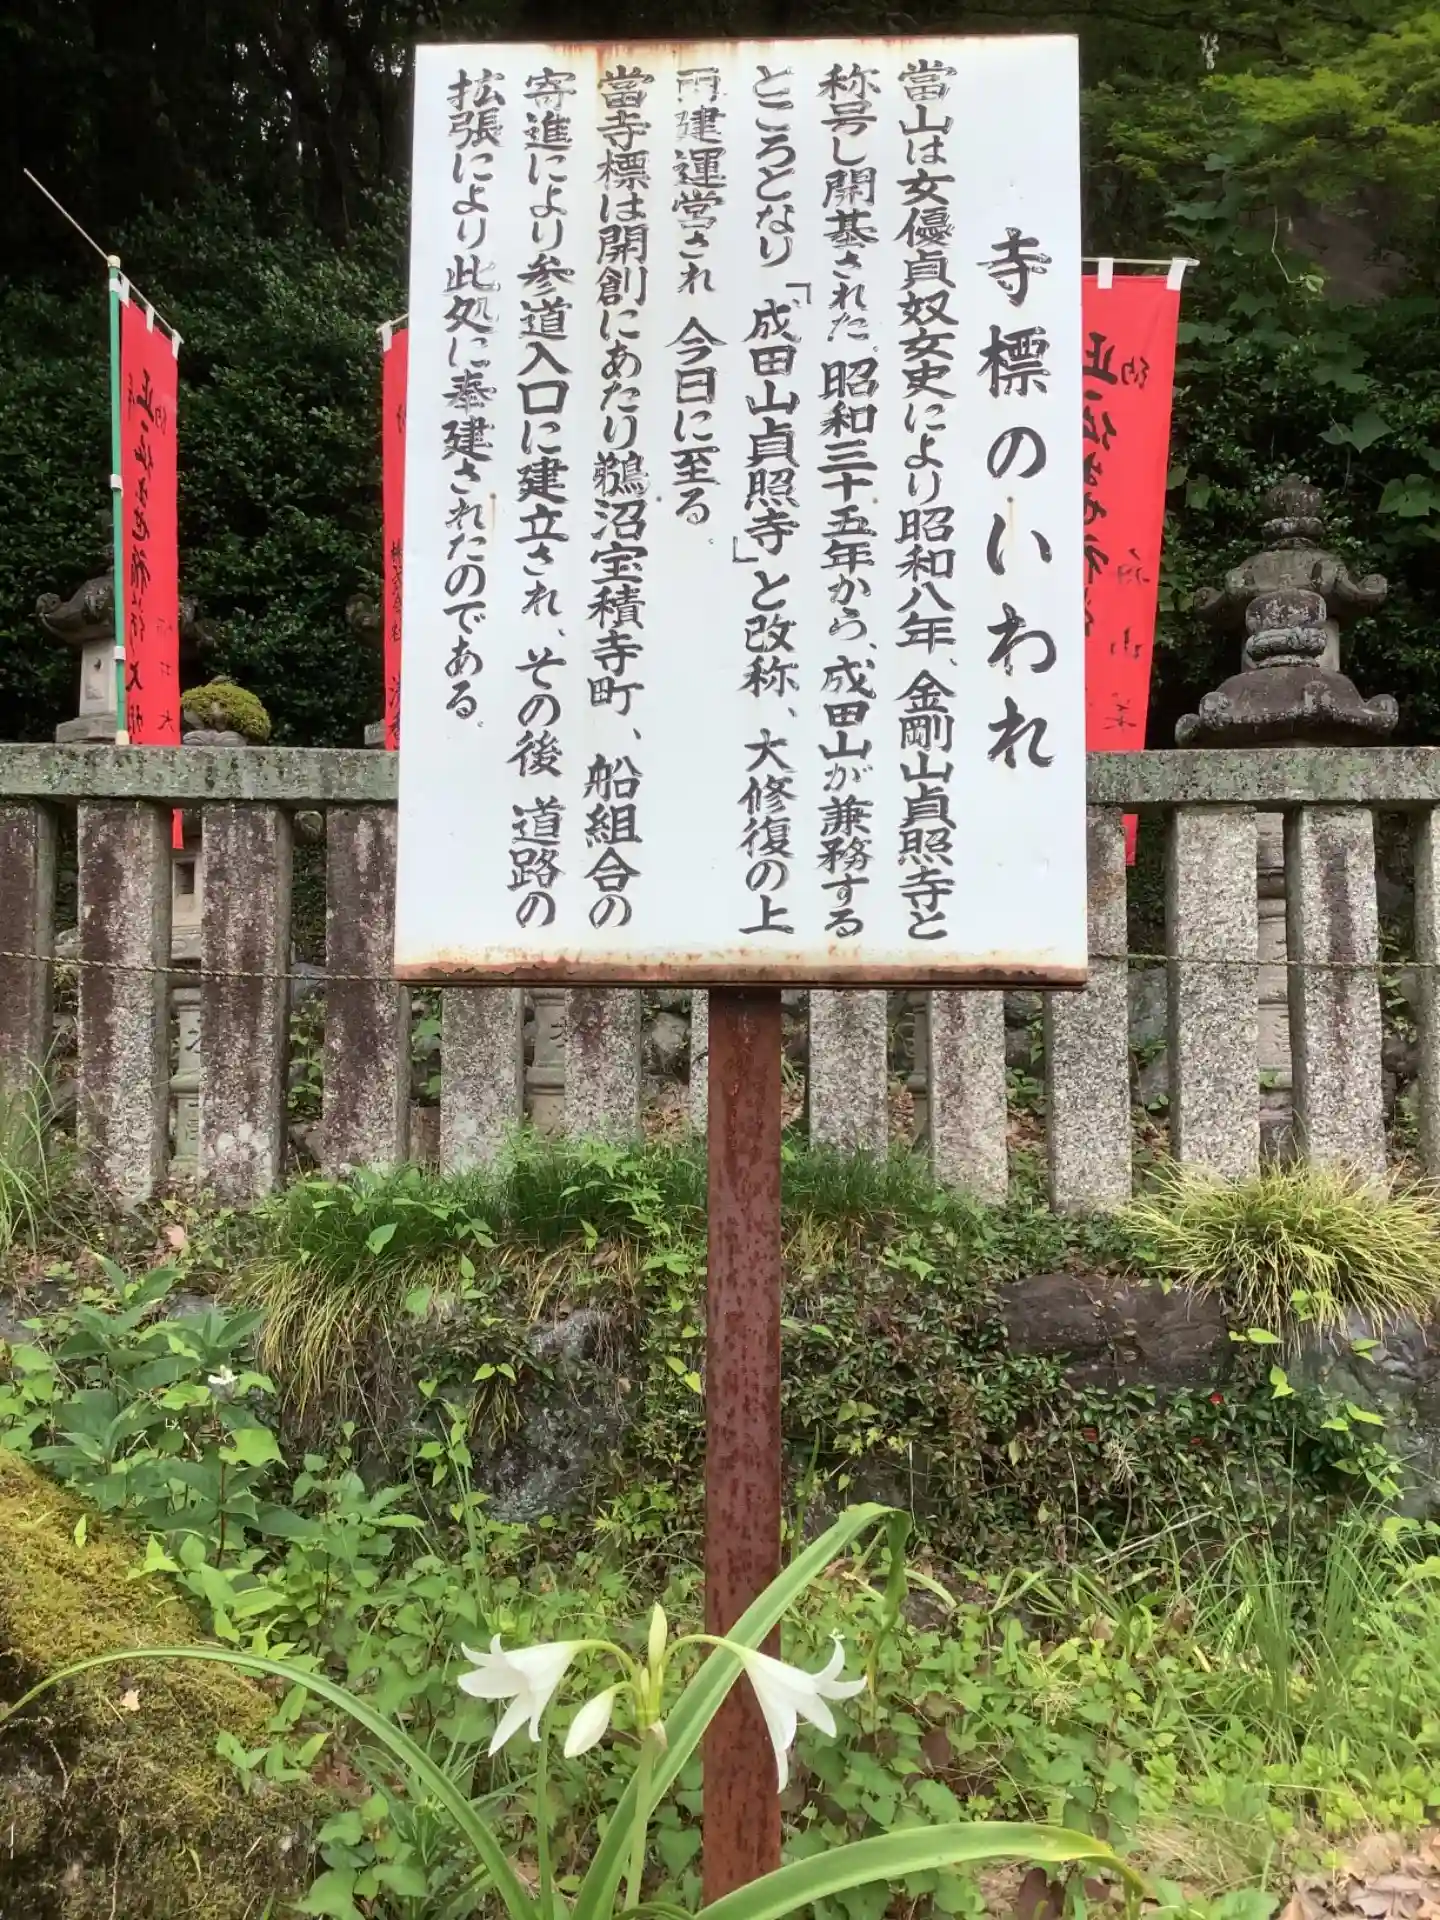 寺標のいわれ
當山は女優貞奴女史により昭和八年、金剛山貞照寺と
称号し開基された。昭和三十五年から、成田山が兼務する
ところとなり「成田山貞照寺」と改称、大修復の上
再建運営され 今日に至る。
當寺標は開創にあたり鵜沼宝積寺町、船組合の
寄進により参道入口に建立され、その後 道路の
拡張により此処に奉建されたのである。